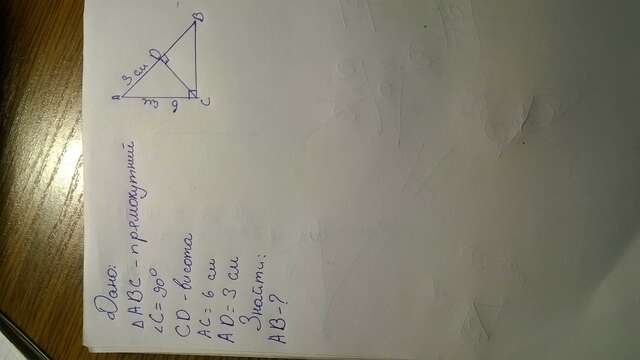 Дано:
△ABC - прямокутний
∠C = 90°
CD - висота
AC = 6 см
AD = 3 см
Знайти:
AB - ?
A
3 см
D
6 см
C
B